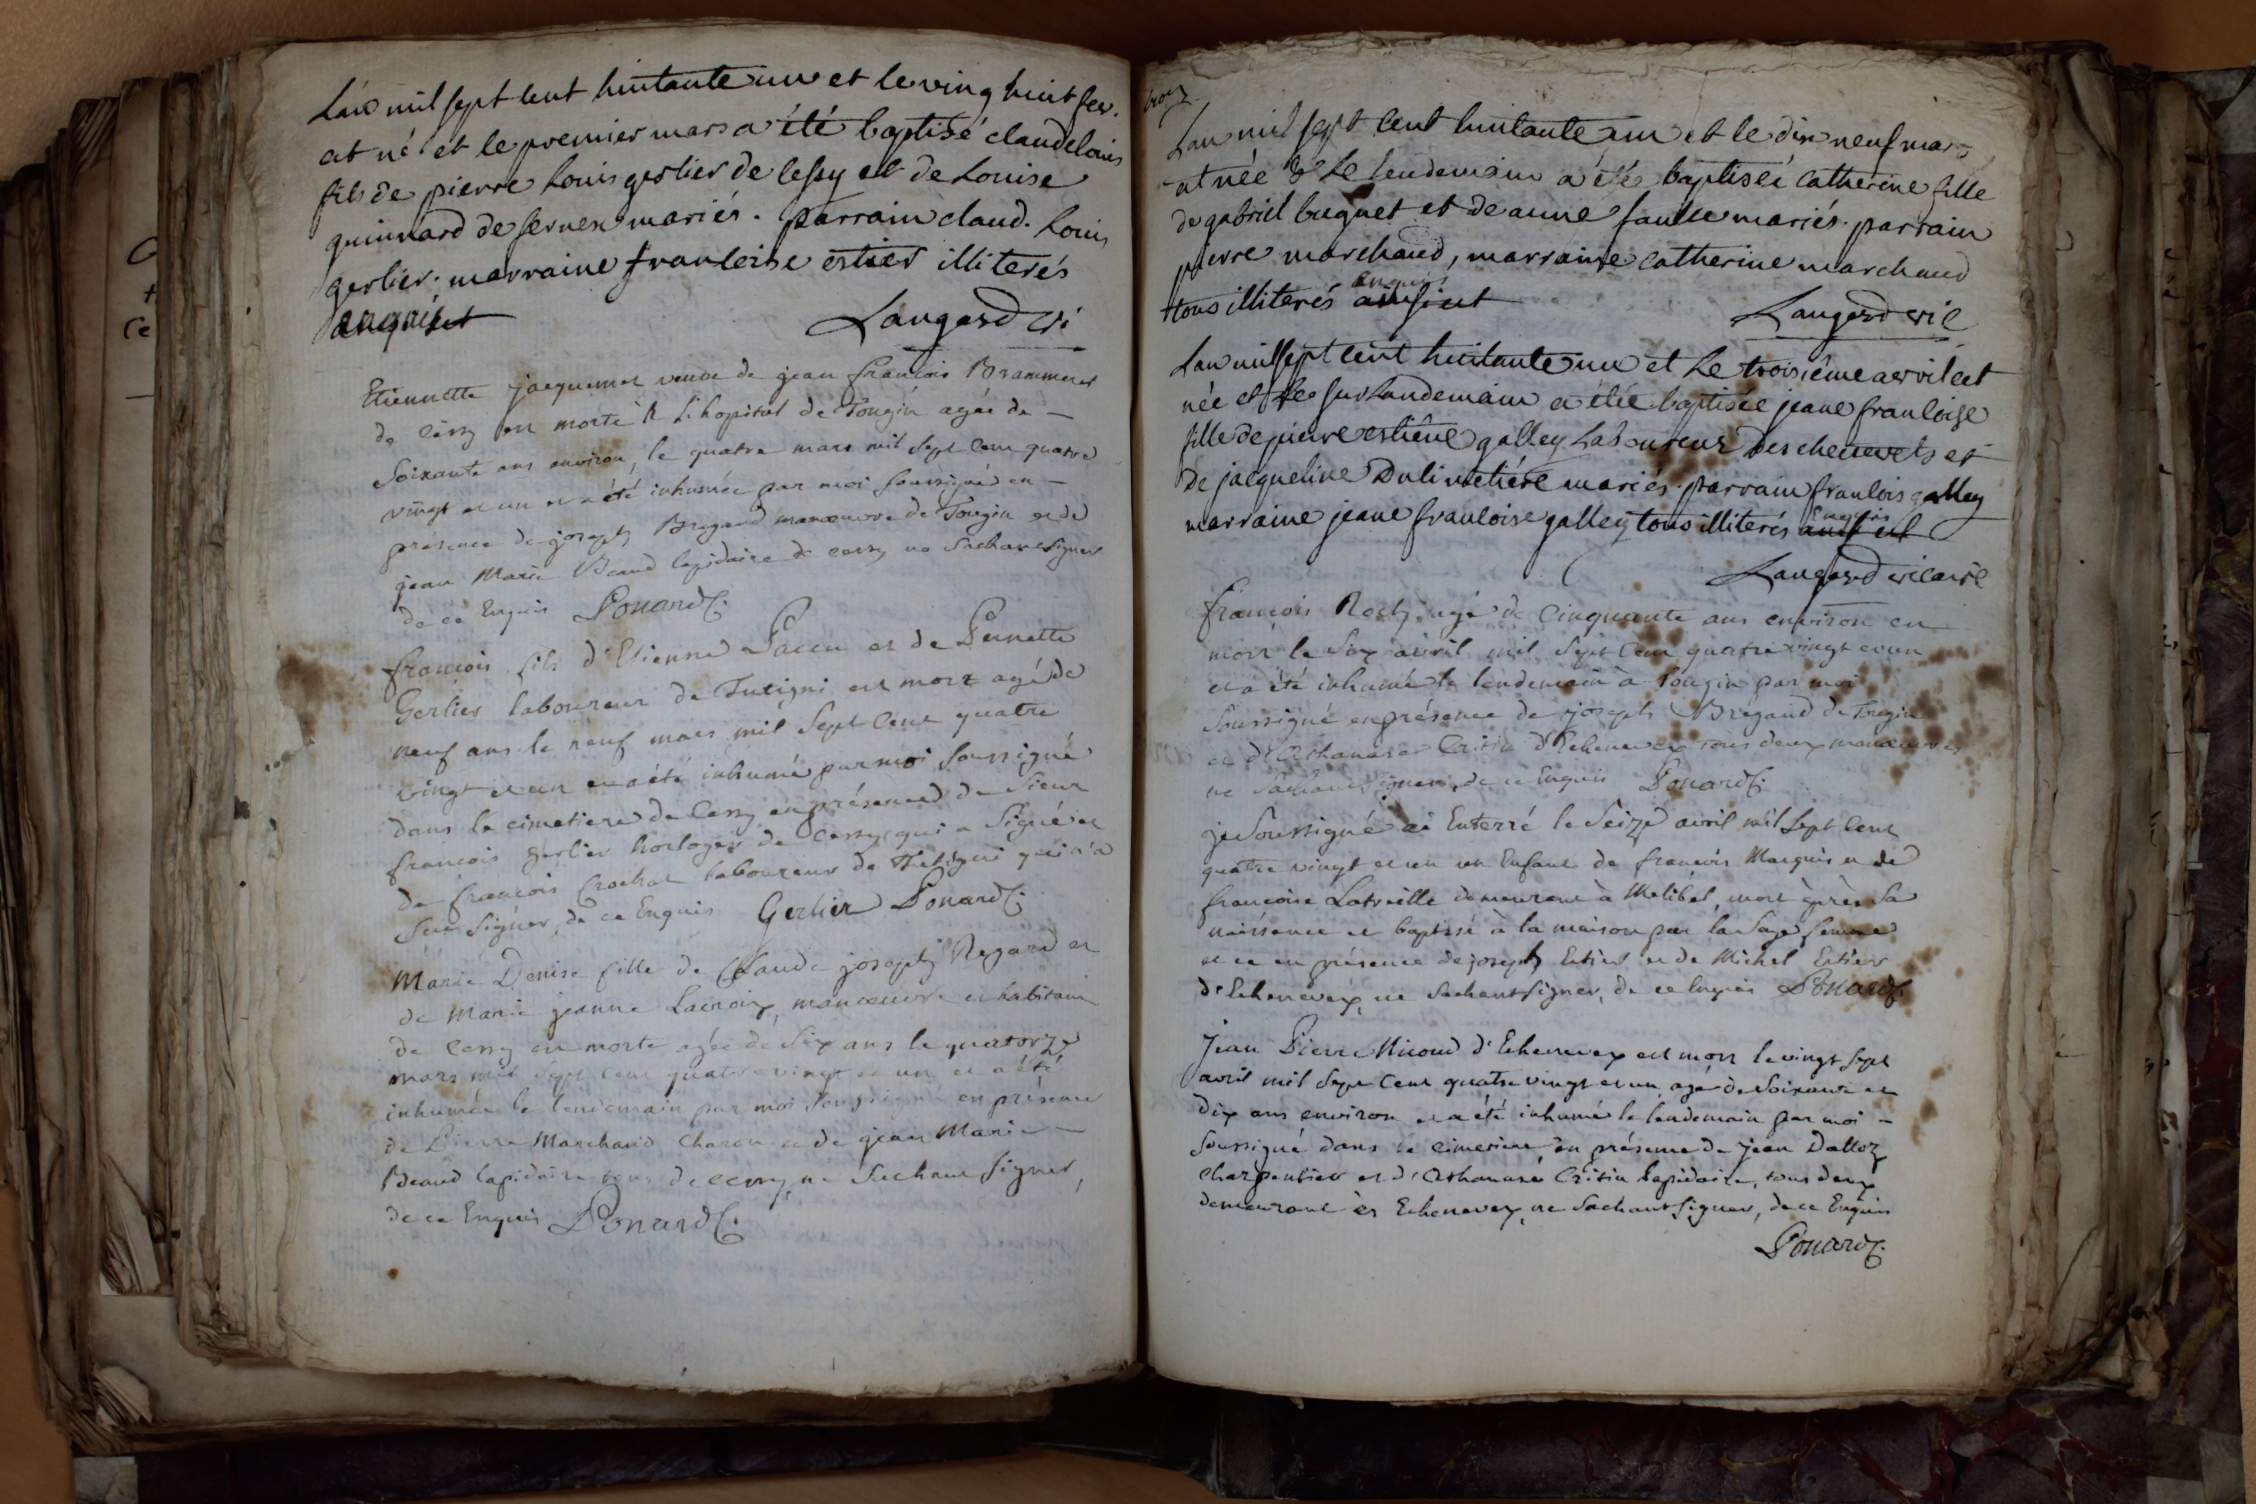 Lan mil sept cent huitante un et le ving huit fev.
at né et le premier mars a été baptisé claude louis
fils de pierre Louis gerlier de Cessy et de Louise
quinnard de fernex mariés. parrain claud. Louis
gerlier. marraine francoise estier illiterés
enquis
Langard vi
Etiennette jacquemet veuve de jean francois Brammerel
de Cessy est morte à L'hopital de Tougin agée de
Soixante ans environ, le quatre mars mil Sept Cent quatre
vingt et un et a été inhumée par moi Soussigné en
presence de joseph Bregand manoeuvre de Tougin et de
jean Marie Beaud lapidaire de cessy ne Sachant Signer
de ce Enquis Ponard C.
francois fils d'Etienne Paccu et de Pernette
Gerlier laboureur de Tutigni est mort agé de
neuf ans le neuf mars mil Sept Cent quatre
vingt et un et a été inhumé par moi Soussigné
dans le cimetiere de Cessy en présence de Sieur
francois gerlier horloger de Cessy, qui a Signé et
de francois Crochat laboureur de Tutigni qui n'a
Seu Signer, de ce Enquis Gerlier Ponard C.
Marie Denise fille de Claude joseph Regard et
de Marie jeanne Lacroix, manoeuvre et habitant
de Cessy est morte agée de Six ans le quatorze
mars mil Sept Cent quatre vingt et un et a été
inhumée le lendemain par moi Soussigné en présence
de Pierre Marchand Charon et de jean Marie
Beaud lapidaire tous de cessy, ne Sachant Signer,
de ce Enquis Ponard C.
Lan mil sept cent huitante un et le dix neuf mars
at née & le lendemain a étée baptisée catherine fille
de gabriel buquet et de anne mariés. parrain
pierre marchand, marraine catherine marchand
tous illiterés enquis
Langard vic
Lan mil sept cent huitante un et Le troisiême avril est
née et Le surLandemain a étée baptisée jeane francoise
fille de pierre estiêne galley Laboureur des chenevets et
De jacqueline Dulimetiére mariés. parrain francois galley
marraine jeane francoise galley tous illiterés enquis
Langard vicaire
francois Roch agé de Cinquante ans environ est
mort le Six avril mil Sept Cent quatre vingt et un
et a été inhumé le lendemain à Tougin par moi
Soussigné en présence de joseph Bregand de Tougin
et d'Athanase Critin d'Echenevex tous deux manoeuvres
ne Sachant Signer, de ce Enquis Ponard C.
je Soussigné ai Enterré le Seize avril mil Sept Cent
quatre vingt et un un Enfant de francois Marquis et de
francoise Latreille demeurant à Melibel, mort après Sa
naissance et baptisé à la maison par la Sage femme
et ce en présence de joseph Estier et de Michel Estier
d'Echenevex, ne Sachant Signer, de ce Enquis Ponard C.
Jean Pierre Nicoud d'Echenevex est mort le vingt Sept
avril mil Sept Cent quatre vingt et un, agé de Soixante et
dix ans environ et a été inhumé le lendemain par moi
Soussigné dans le cimetiere en présence de Jean Dalloz
Charpentier et d'Athanase Critin lapidaire, tous deux
demeurant ès Echenevex, ne Sachant Signer, de ce Enquis
Ponard C.